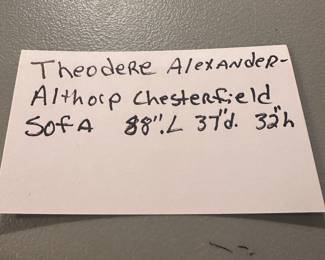 Theodere Alexander-
Althorp Chesterfield
Sofa 88".L 37"d. 32"h